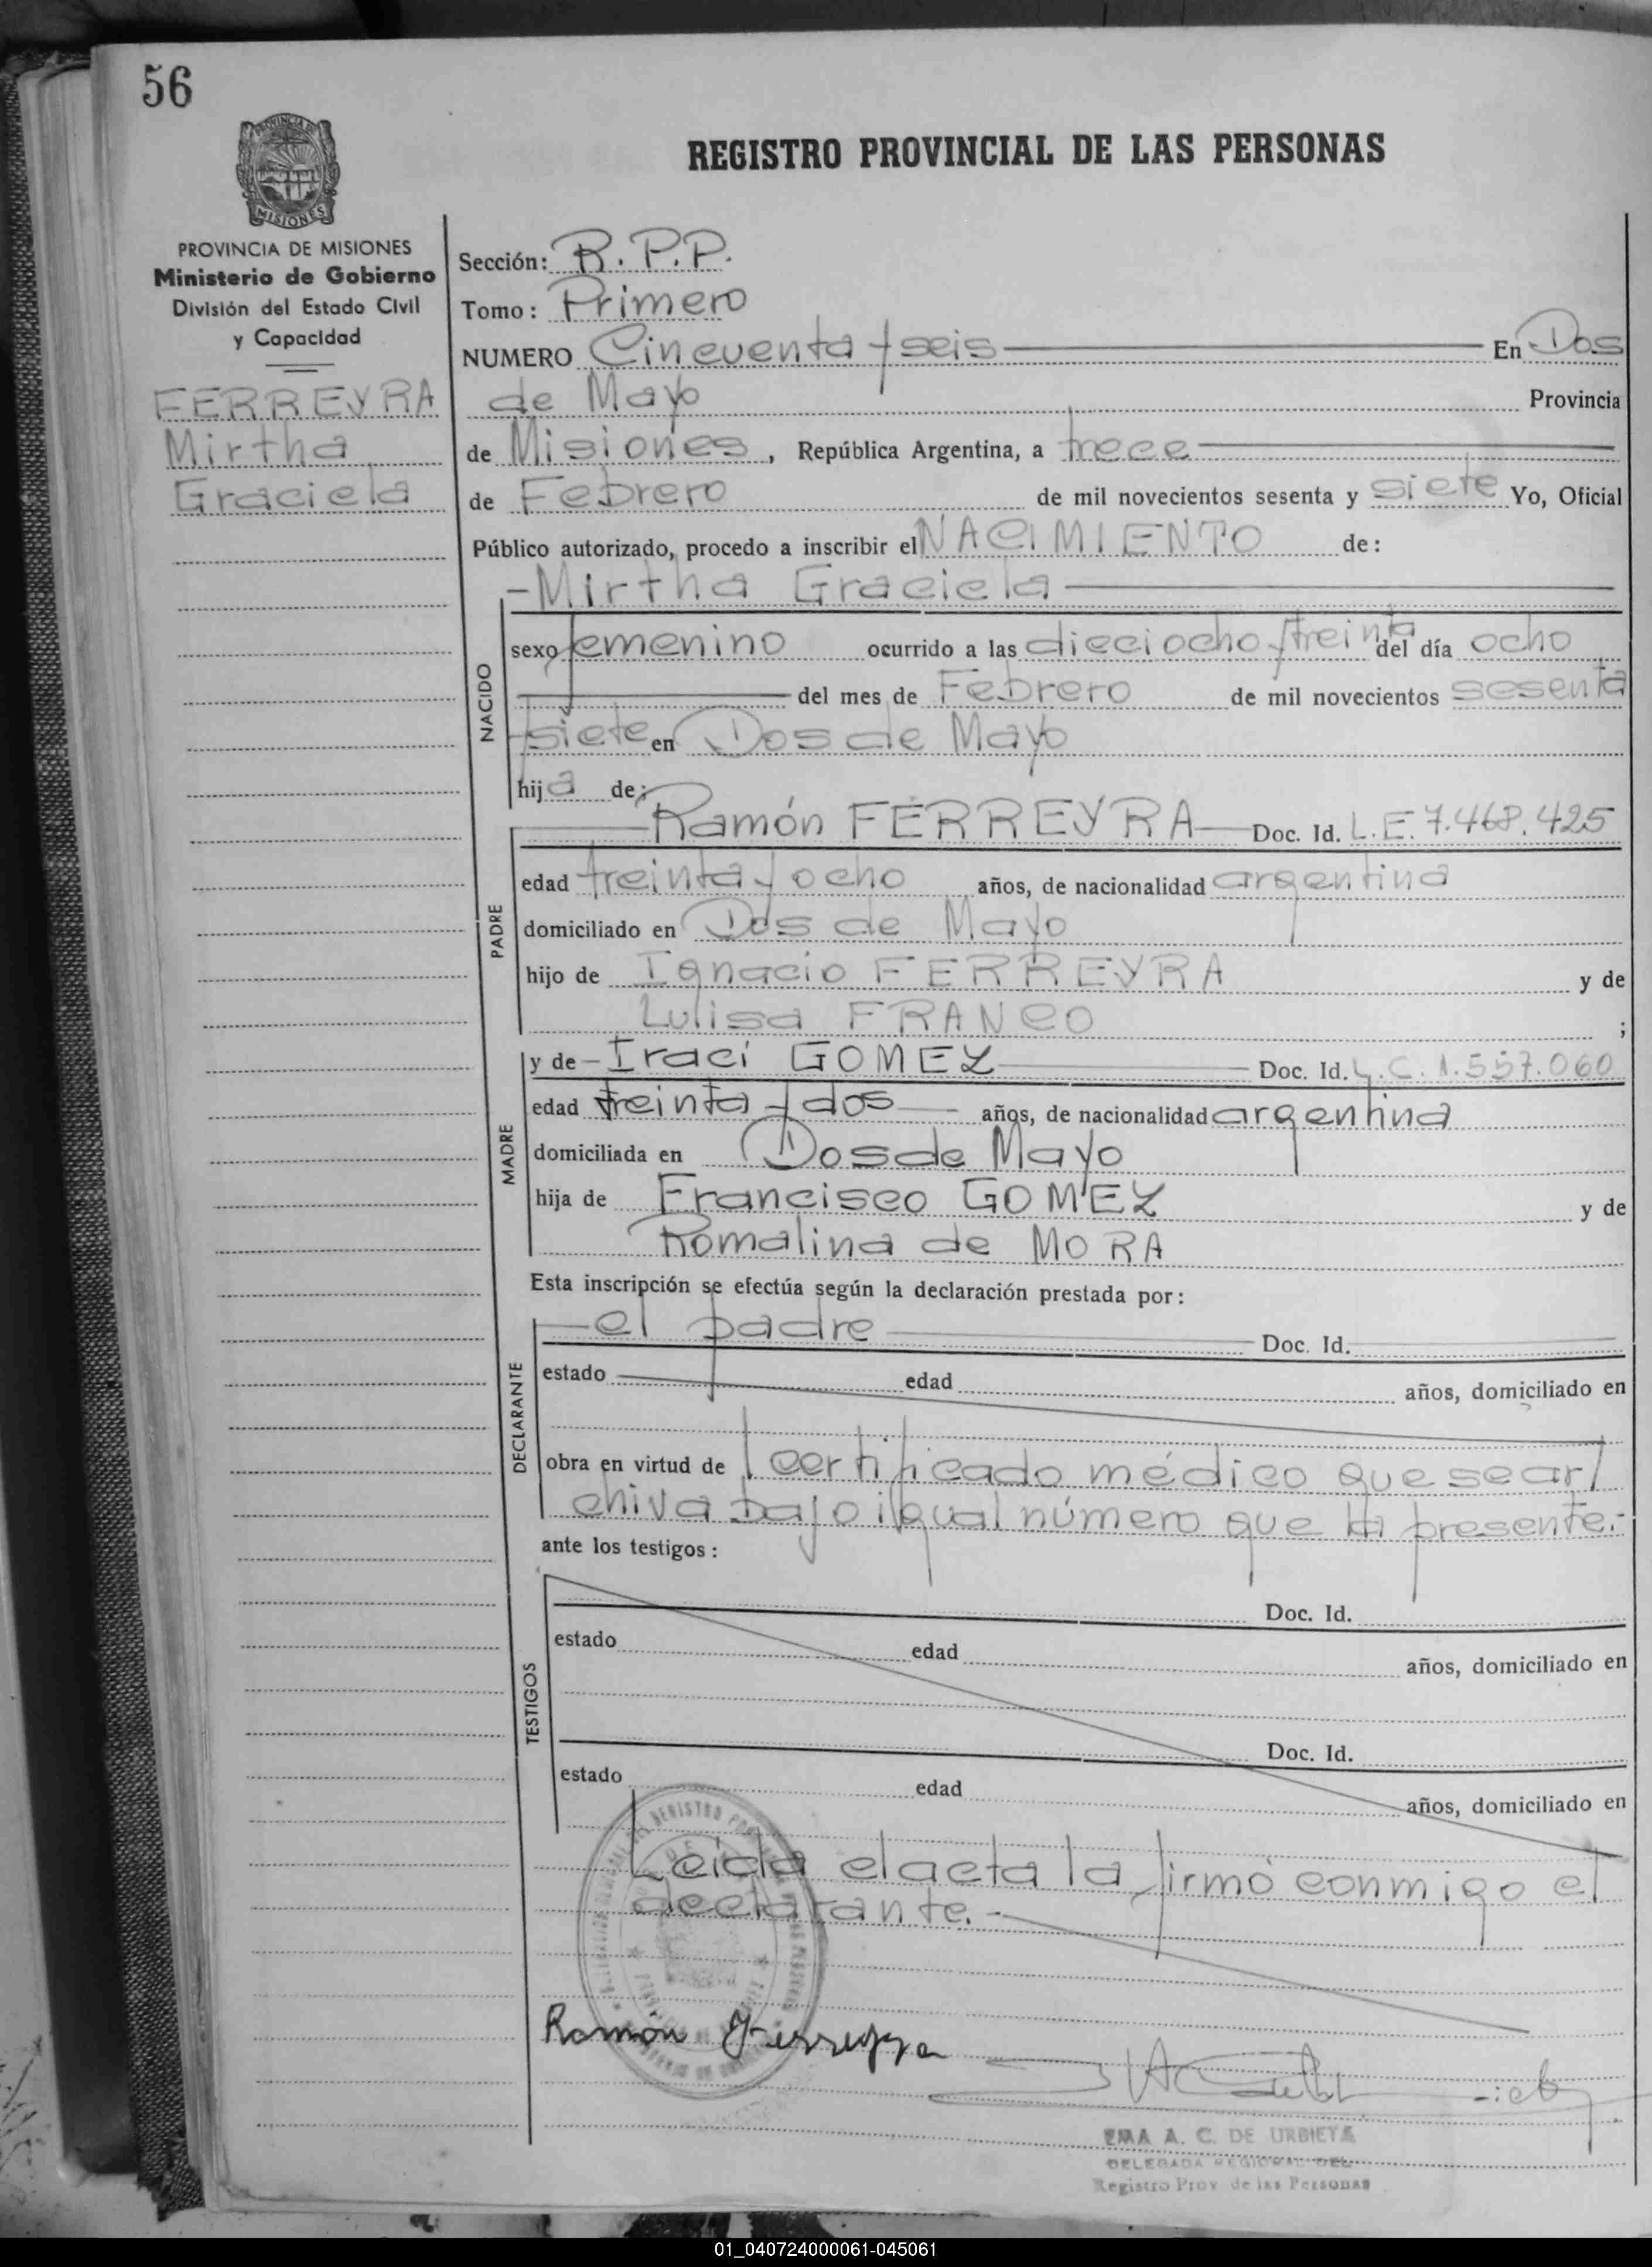 56
REGISTRO PROVINCIAL DE LAS PERSONAS
MISIONES
PROVINCIA DE MISIONES
Ministerio de Gobierno
División del Estado Civil
y Capacidad
FERREYRA
Mirtha
Graciela
Sección: R.P.P.
Tomo: Primero
NUMERO Cincuenta y seis En Dos
de Mayo Provincia
de Misiones, República Argentina, a trece
de Febrero de mil novecientos sesenta y siete Yo, Oficial
Público autorizado, procedo a inscribir el NACIMIENTO de:
-Mirtha Graciela
NACIDO
sexo femenino ocurrido a las dieciocho y treinta del día ocho
del mes de Febrero de mil novecientos sesenta
y siete en Dos de Mayo
hija de:
PADRE
Ramón FERREYRA Doc. Id. L.E. 7.468.425
edad treinta y ocho años, de nacionalidad argentina
domiciliado en Dos de Mayo
hijo de Ignacio FERREYRA y de
Lulisa FRANCO ;
MADRE
y de - Iraci GOMEZ Doc. Id. L.C. 1.557.060
edad treinta y dos años, de nacionalidad argentina
domiciliada en Dos de Mayo
hija de Francisco GOMEZ y de
Romalina de MORA
Esta inscripción se efectúa según la declaración prestada por:
DECLARANTE
el padre Doc. Id.
estado edad años, domiciliado en
obra en virtud de certificado médico que se ar/
chiva bajo igual número que la presente.-
ante los testigos:
TESTIGOS
Doc. Id.
estado edad años, domiciliado en
Doc. Id.
estado edad años, domiciliado en
Leida el acta la firmó conmigo el
declarante.-
Ramón Ferreyra
EMA A. C. DE URBIETA
DELEGADA REGIONAL DEL
Registro Prov de las Personas
01_040724000061-045061